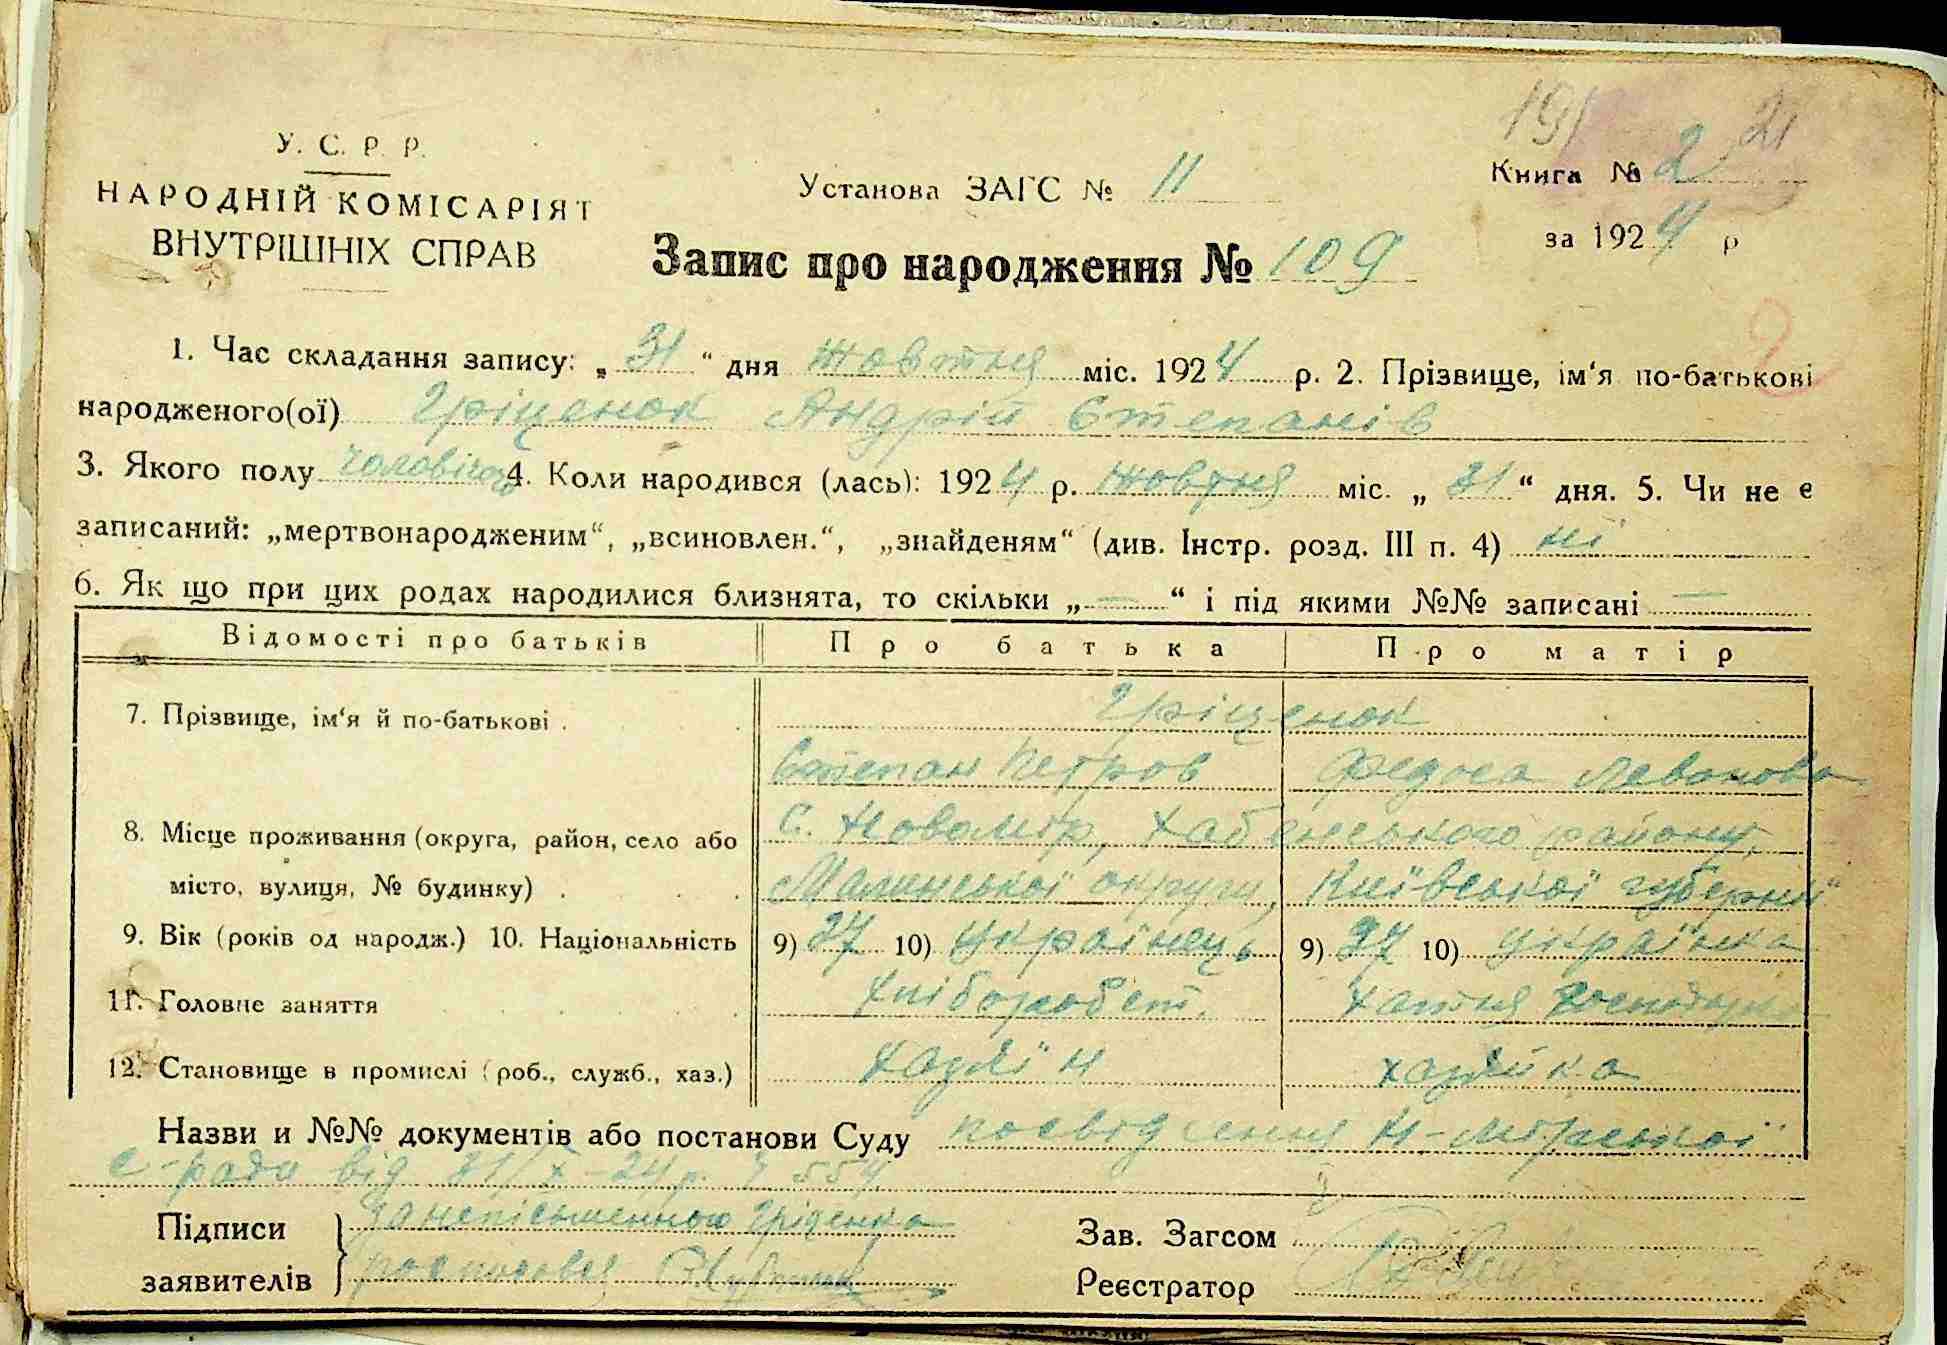 191 21
У. С. Р. Р.
НАРОДНІЙ КОМІСАРІЯТ
ВНУТРІШНІХ СПРАВ
Установа ЗАГС № 11
Книга № 2
за 1924 р
Запис про народження № 109
2
1. Час складання запису: „31“ дня Жовтня міс. 1924 р. 2. Прізвище, ім‘я по-батькові
народженого(ої) Гріценок Андрій Степанів
3. Якого полу чоловічого 4. Коли народився (лась): 1924 р. Жовтня міс. „31“ дня. 5. Чи не є
записаний: „мертвонародженим“, „всиновлен.“, „знайденям“ (див. Інстр. розд. III п. 4) ні
6. Як що при цих родах народилися близнята, то скільки „—“ і під якими №№ записані —
Відомості про батьків Про батька Про матір
7. Прізвище, ім‘я й по-батькові . Гріценок
Степан Петров Федоса Леванова
8. Місце проживання (округа, район, село або с. Новомір, Хабенського району,
місто, вулиця, № будинку) . Малинської округи, Київської губернії
9. Вік (років од народж.) 10. Національність 9) 27 10) Українець 9) 27 10) Українка
11. Головне заняття Хліборобст. хатня господарк
12. Становище в промислі (роб., служб., хаз.) хазяїн хазяйка
Назви и №№ документів або постанови Суду посвідчення Н-Мірської
с-ради від 31/X-24р. № 554
Підписи
заявителів
за неписьменного Гріценка
росписався
Зав. Загсом
Реєстратор